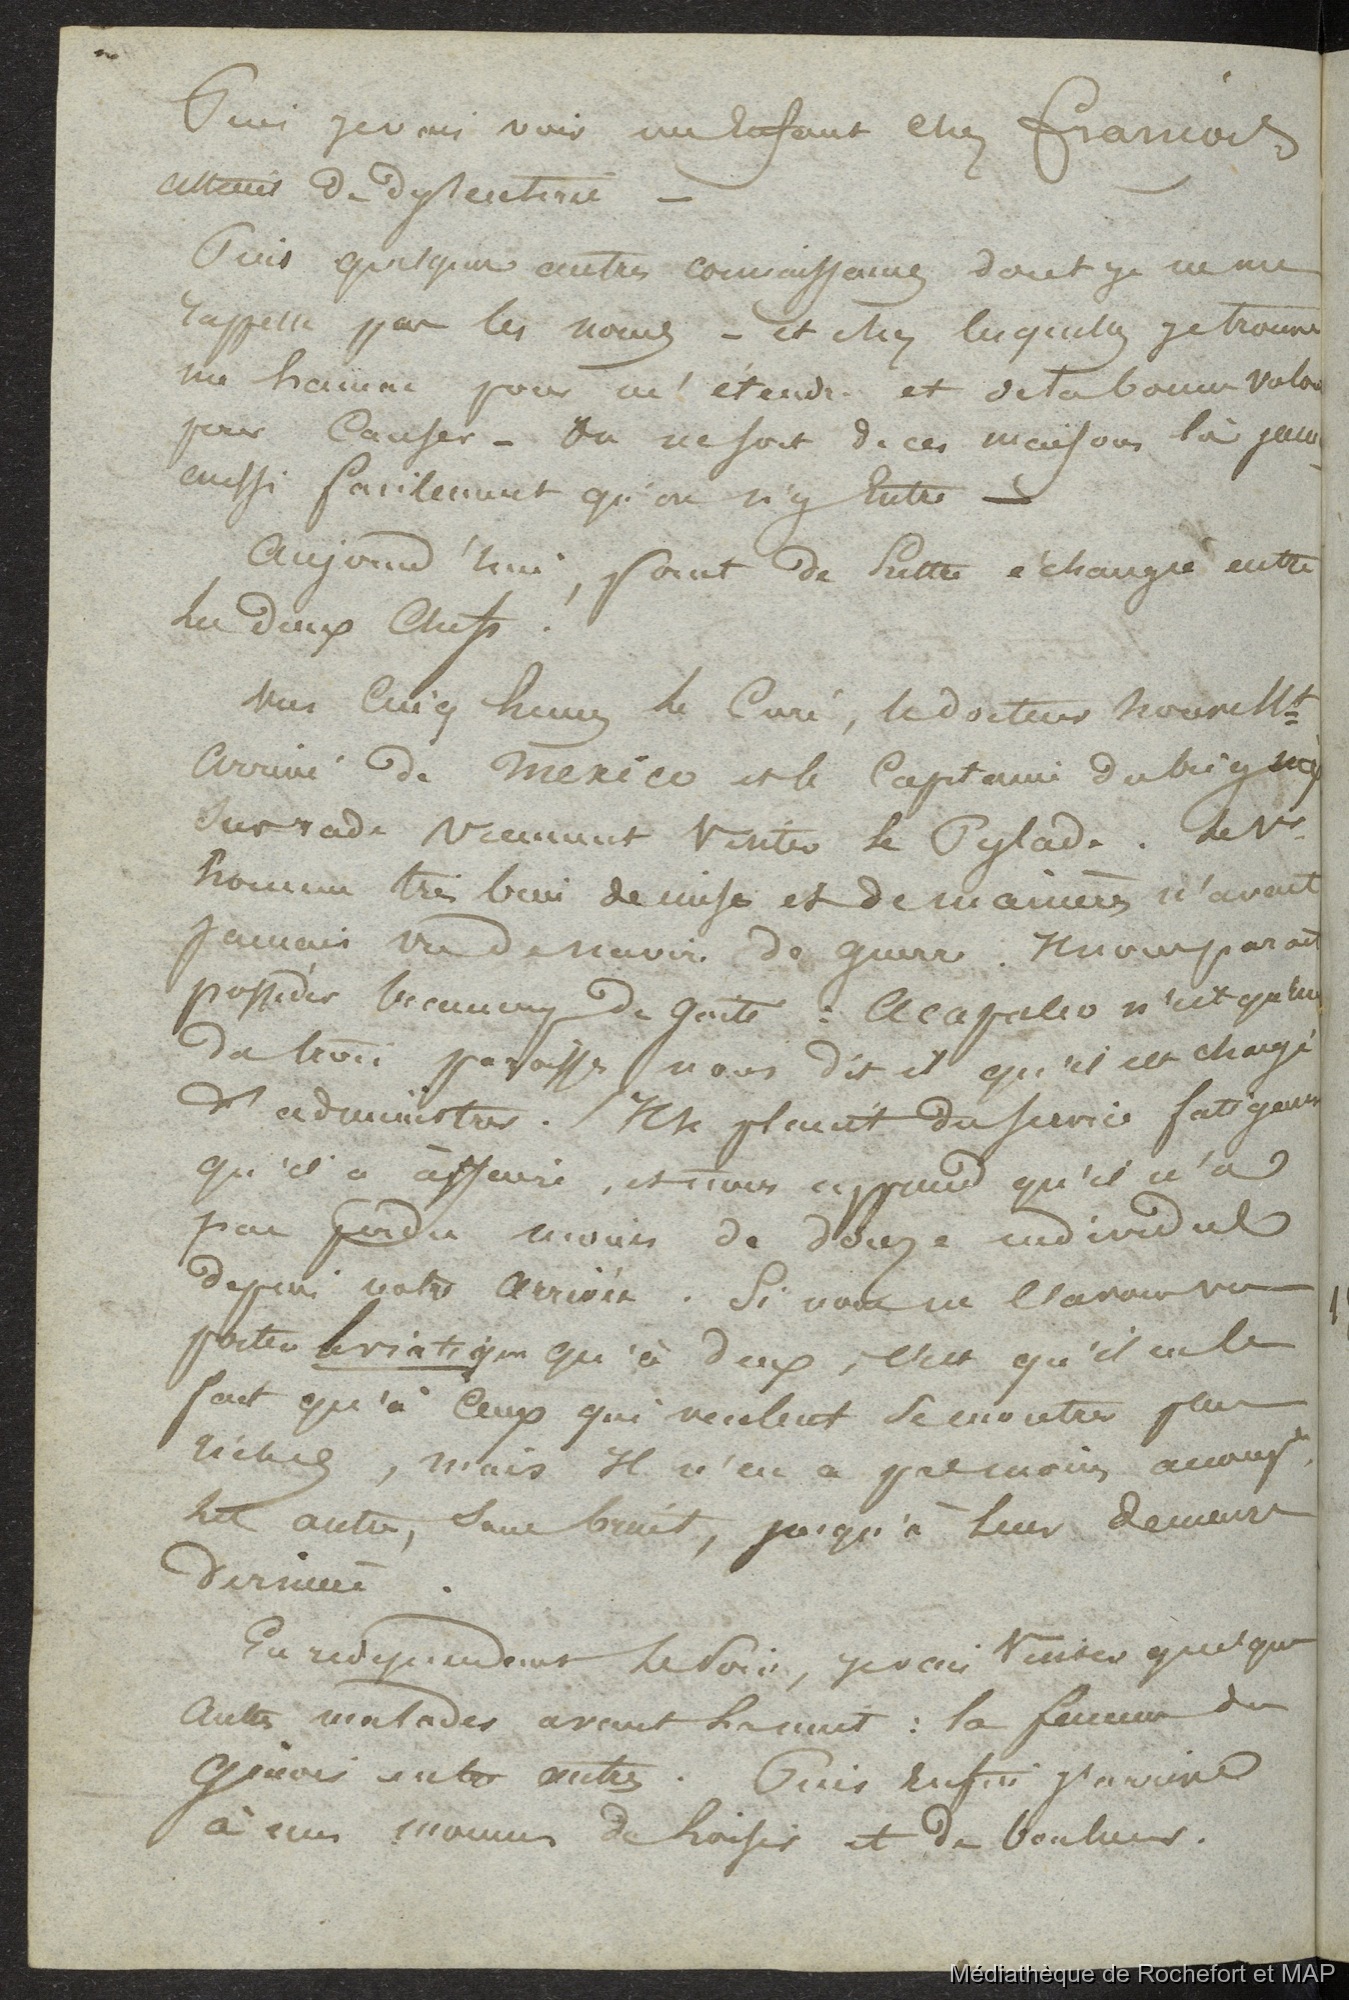 Puis je vais voir un Enfant chez François
atteint de dyssenterie —
Puis quelques autres connaissances dont je ne me
rappelle pas les noms — et chez lesquelles je trouve
un hamac pour m'étendre et de la bonne volon
pour Causer — On ne sort de ces maisons là
aussi facilement qu'on n'y Entre —
Aujourd'hui, point de lettre échangée entre
les deux Chefs.
Vers Cinq heures le Curé, le docteur nouvellt
arrivé de Mexico et le Capitaine du brig
sur rade viennent visiter le Pylade. Le
homme très bien de mise et de manières n'avait
jamais vu de navire de guerre. Il nous parait
posséder beaucoup de gaité : Acapulco n'est qu'une
de trois paroisses nous dit il qu'il est chargé
d'administrer. Il se plaint du service fatiguant
qu'il a à faire, et nous apprend qu'il n'a
pas perdu moins de douze individus
depuis notre arrivée. Si nous ne l'avons vu
porter le viatique qu'à deux, c'est qu'il ne le
fait qu'à Ceux qui veulent se montrer plus
riches, mais Il n'en a pas moins accompé
les autres, sans bruit, jusqu'à leur demeure
dernière.
En redescendant le soir, je vais visiter quelques
autres malades avant la nuit : la femme du
entre autres. Puis Enfin j'arrive
à mes momens de loisir et de bonheur.
Médiathèque de Rochefort et MAP